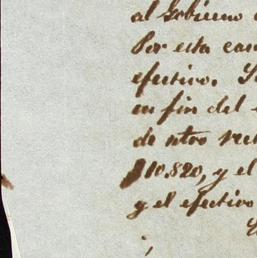 al Gobierno
Por esta
efectivo.
en fin del
de ntro
$10.820, y el
y el efectivo